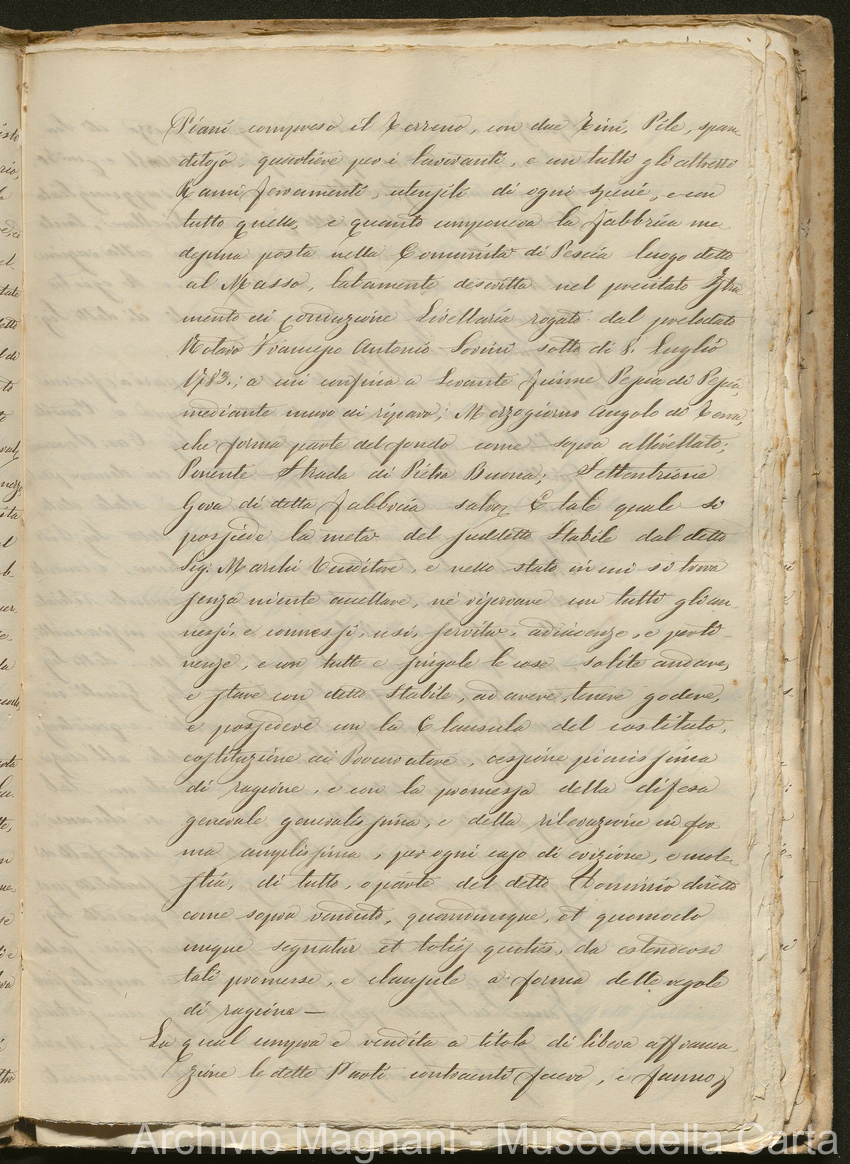 Piani compreso il Terreno, con due Tini, Pile, span
ditojo, quartiere per i lavoranti, e con tutti gli attrezzi
Rami ferramenti, utensili di ogni specie, e con
tutto quello, e quanto componeva la Fabbrica me-
desima posta nella Comunità di Pescia luogo detto
al Masso, latamente descritta nel precitato Istru
mento di Conduzione Livellaria rogato dal prelodato
Notaro Francesco Antonio Sorini sotto di 8. Luglio
1783.; a cui confina a Levante Fiume Pescia di Pescia,
mediante muro di riparo; Mezzogiorno angolo di Terra,
che forma parte del fondo come sopra allivellato;
Ponente Strada di Pietra Buona; Settentrione
Gora di detta Fabbrica salvo, E tale quale si
possiede la metà del suddetto Stabile dal detto
Sig. Marchi Venditore, e nello stato in cui si trova
senza niente accettare, nè riservare con tutti gli an-
nessi, e connessi, usi, servitù, adiacenze, e perti-
nenze, e con tutte e singole le cose solite andare,
e stare con detto Stabile, ad avere, tenere godere,
e possedere con la Clausula del costituto,
costituzione di Procuratore, cessione pienissima
di ragione, e con la promessa della difesa
generale generalissima, e della rilevazione in for
ma amplissima, per ogni caso di evizione, e mole-
stia, di tutto, o parte del detto Dominio diretto
come sopra venduto, quandocumque, et quomodo
cumque segnatur et toties quoties, da estendersi
tali promesse, e clausule a forma delle regole
di ragione —
La qual compra e vendita a titolo di libera affranca-
zione le dette Parti contraenti fecero, e fanno
Archivio Magnani - Museo della Carta